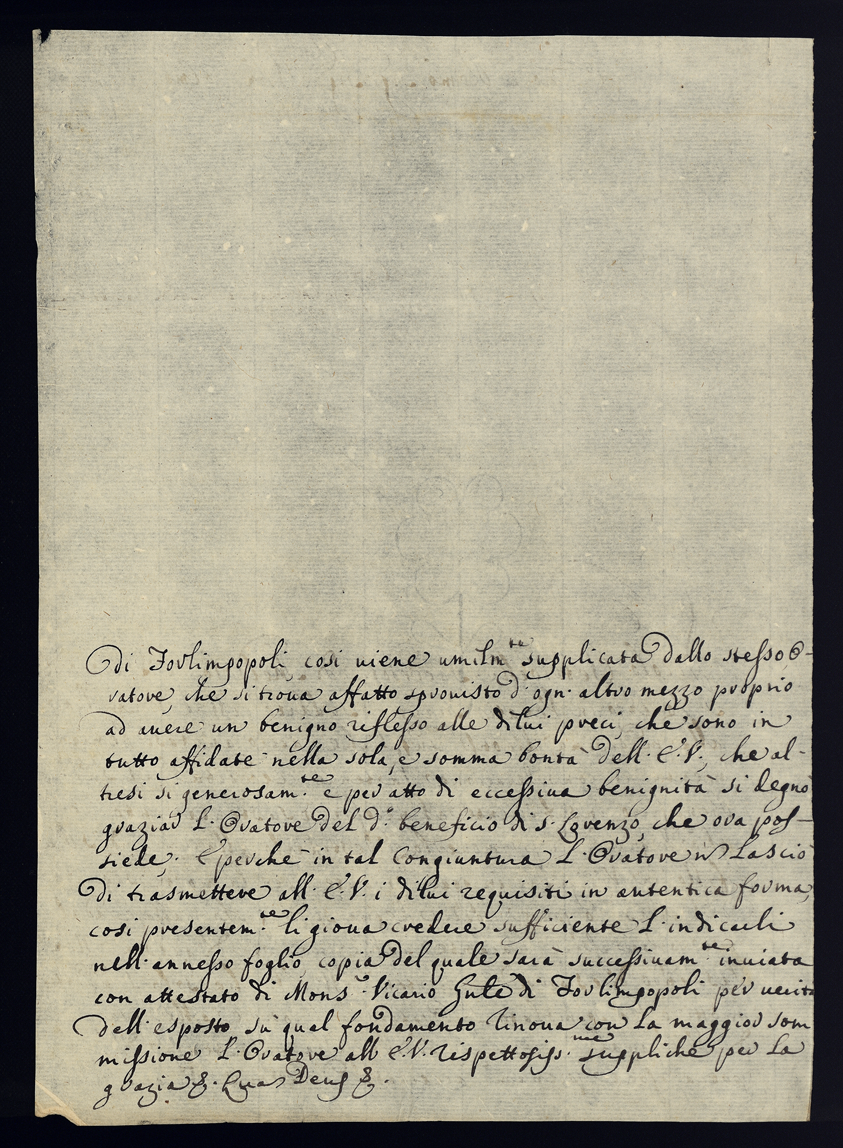 di Forlimpopoli, cosi viene umilm.te supplicata dallo stesso O-
ratore, che si trova affatto sprovisto d'ogn' altro mezzo proprio
ad avere un benigno riflesso alle di lui preci, che sono in
tutto affidate nella sola, e somma bontà dell' E. V., che al-
tresi si generosam.te e per atto di eccessiva benignità si degnò
graziar L' Oratore del d.o beneficio di S. Lorenzo, che ora pos-
siede. E perche in tal congiuntura L' Oratore n lasciò
di trasmettere all' E. V. i di lui requisiti in autentica forma,
cosi presentem.te li giova credere sufficiente L' indicarli
nell' annesso foglio, copia del quale sarà successivam.te inviata
con attestato di Mons.r Vicario Gnle di Forlimpopoli per verità
dell' esposto, su qual fondamento rinova con La maggior som
missione L' Oratore all' E. V. rispettosiss.me suppliche per La
grazia &. Quas Deus &.